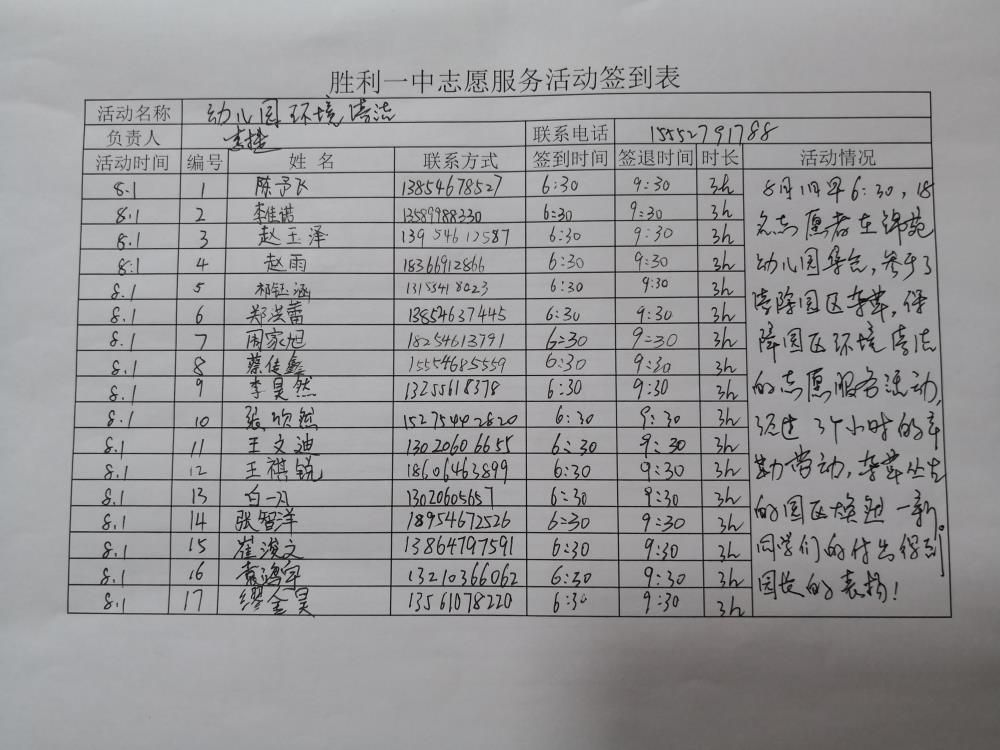 胜利一中志愿服务活动签到表
活动名称 幼儿园环境清洁
负责人 李捷 联系电话 15552791788
活动时间 编号 姓名 联系方式 签到时间 签退时间 时长 活动情况
8.1 1 陈予飞 13854678527 6:30 9:30 3h
8.1 2 李佳诺 13589988330 6:30 9:30 3h
8.1 3 赵玉泽 13954612587 6:30 9:30 3h
8.1 4 赵雨 18366912866 6:30 9:30 3h
8.1 5 祁钰涵 13154418023 6:30 9:30 3h
8.1 6 郑洪蕾 13854637445 6:30 9:30 3h
8.1 7 周家旭 18254613791 6:30 9:30 3h
8.1 8 蔡佳鑫 15554685559 6:30 9:30 3h
8.1 9 李昊然 13255618378 6:30 9:30 3h
8.1 10 张欣然 152754402820 6:30 9:30 3h
8.1 11 王文迪 13020606655 6:30 9:30 3h
8.1 12 王祺锐 18606463899 6:30 9:30 3h
8.1 13 白一月 13020605657 6:30 9:30 3h
8.1 14 张智洋 18954672526 6:30 9:30 3h
8.1 15 崔浚文 13864797591 6:30 9:30 3h
8.1 16 袁鸿宇 13210366062 6:30 9:30 3h
8.1 17 缪金昊 13561078220 6:30 9:30 3h
8月1日早6:30，18
名志愿者在锦苑
幼儿园集合，参于了
清除园区杂草，保
障园区环境清洁
的志愿服务活动，
经过3个小时的辛
勤劳动，杂草丛生
的园区焕然一新。
同学们的付出得到
园长的表扬！